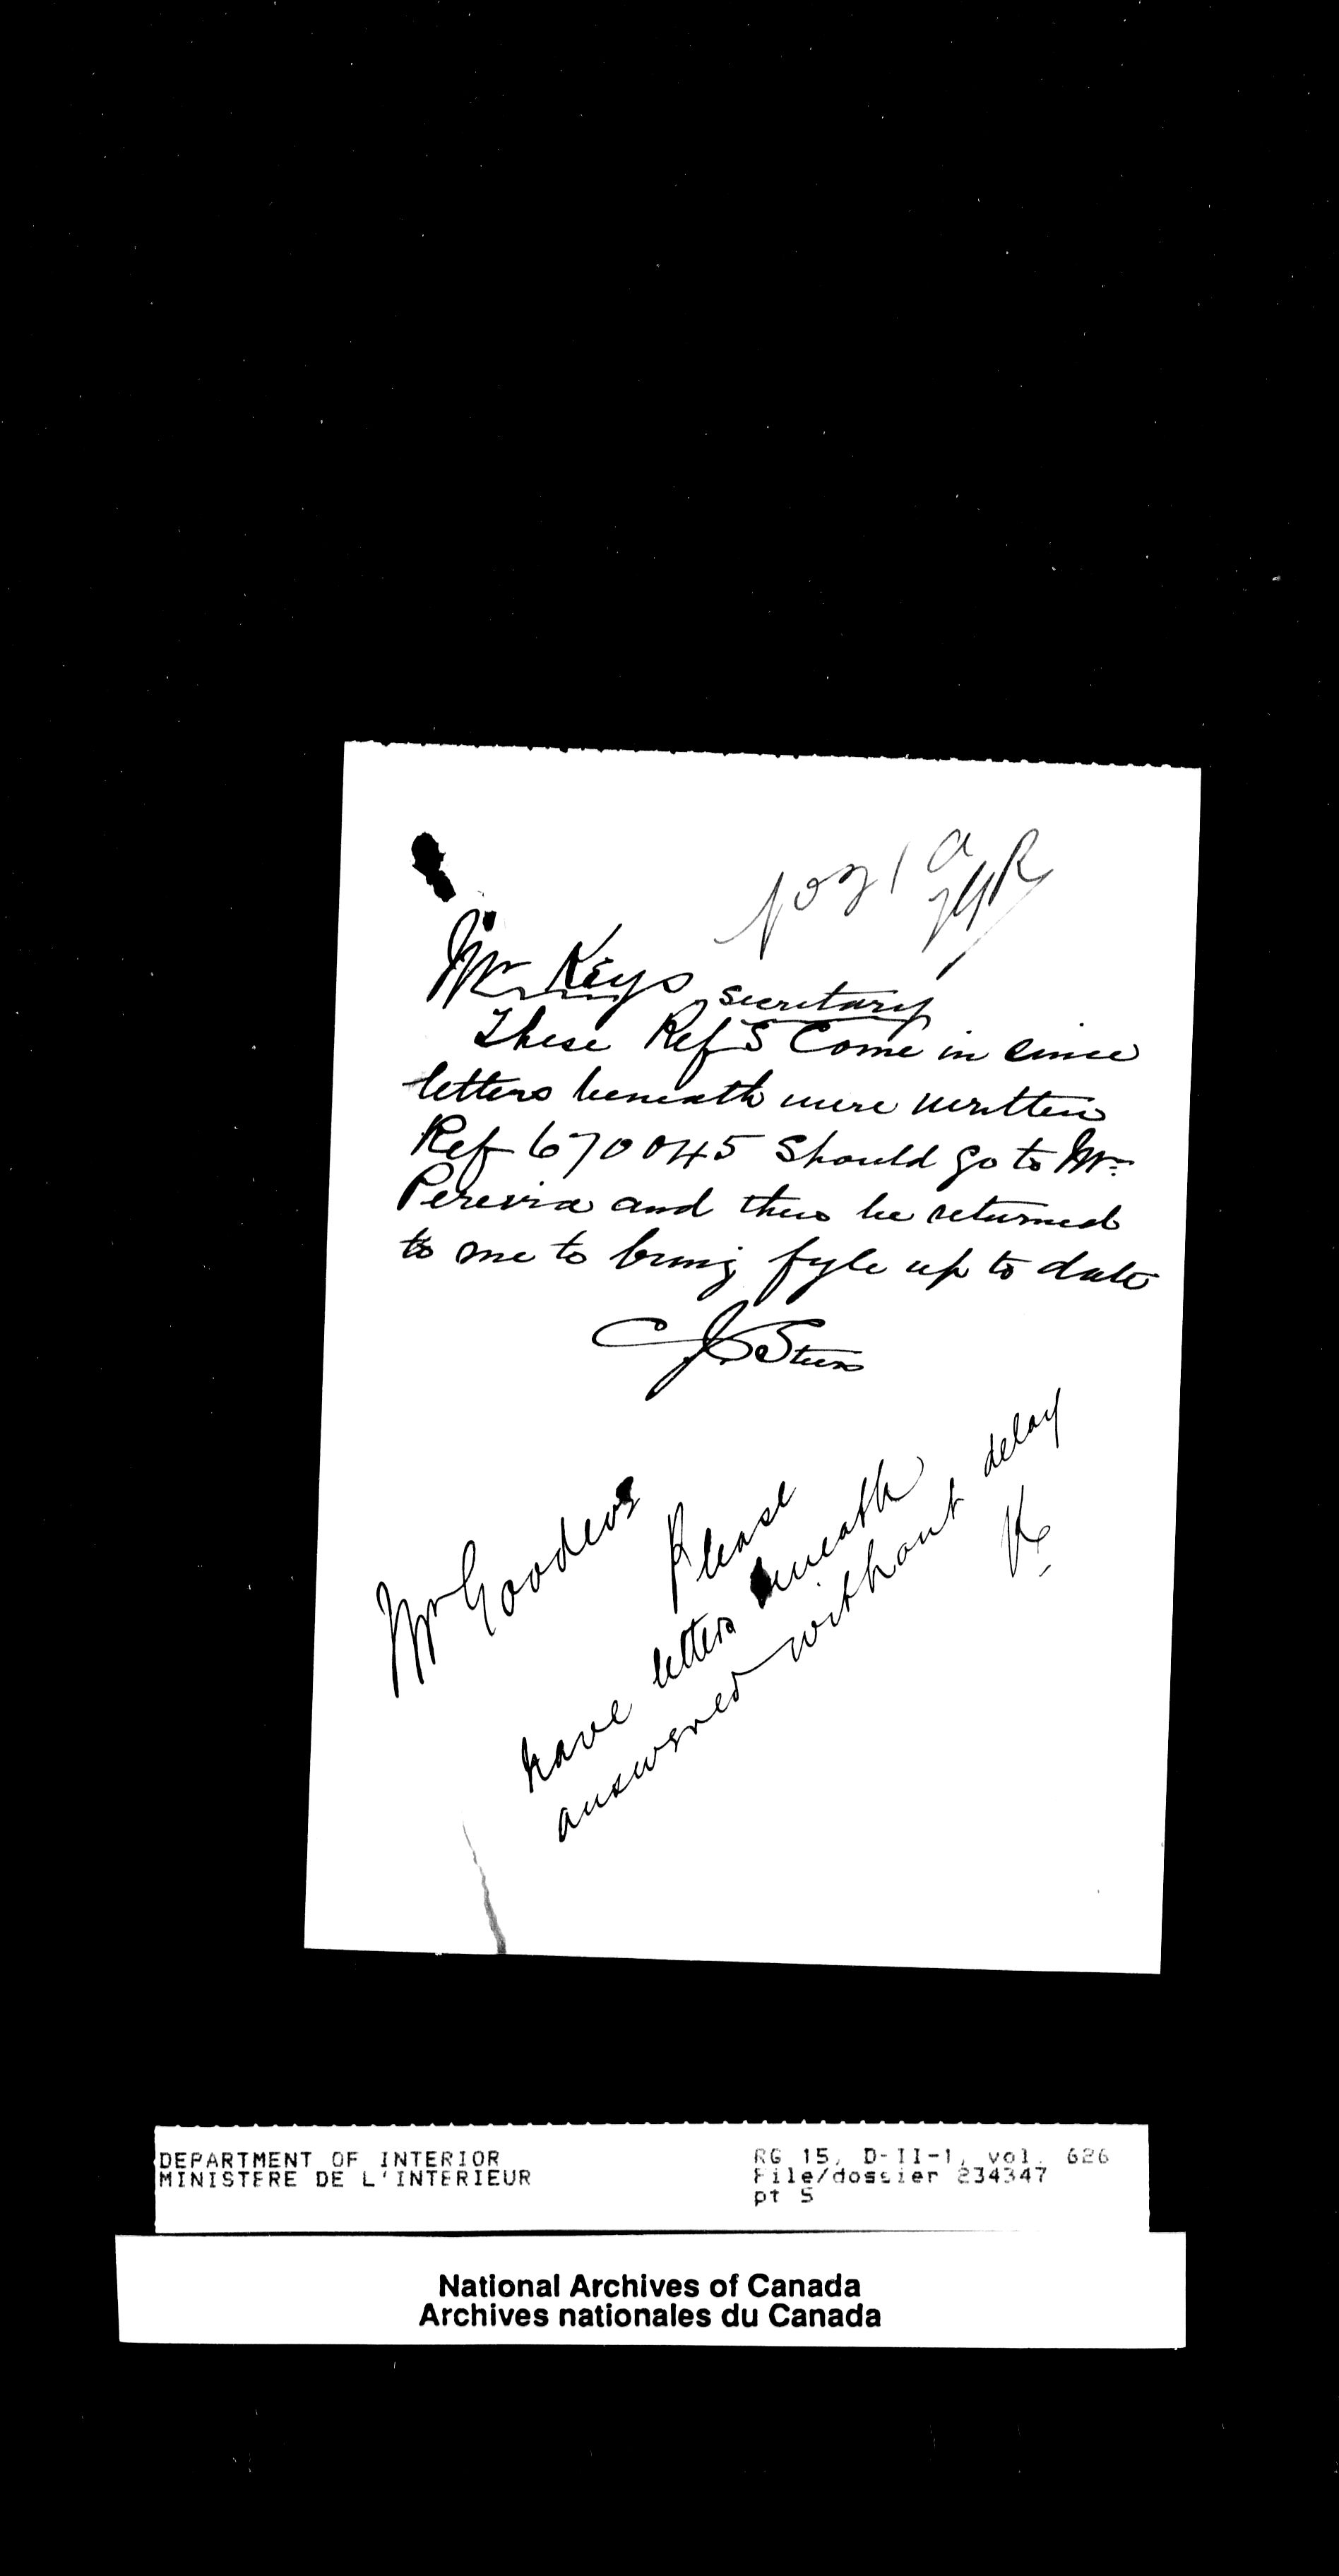 Mr Keys secretary
These Refs Come in since
letters beneath were written
Ref 670045 Should go to Mr
Pereira and then be returned
to me to bring fyle up to date
Mr Goodeve
Please
have letters beneath
answered without delay
K
DEPARTMENT OF INTERIOR
MINISTERE DE L'INTERIEUR
RG 15, D-II-1, vol. 626
File/dossier 234347
pt 5
National Archives of Canada
Archives nationales du Canada